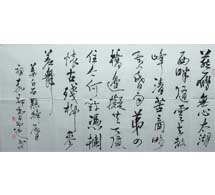 燕雁無心太湖
西畔隨雲去數
峰清苦商略
黃昏雨第四
橋邊擬共天隨
住今何許憑闌
懷古殘柳參
差舞
姜白石點絳唇